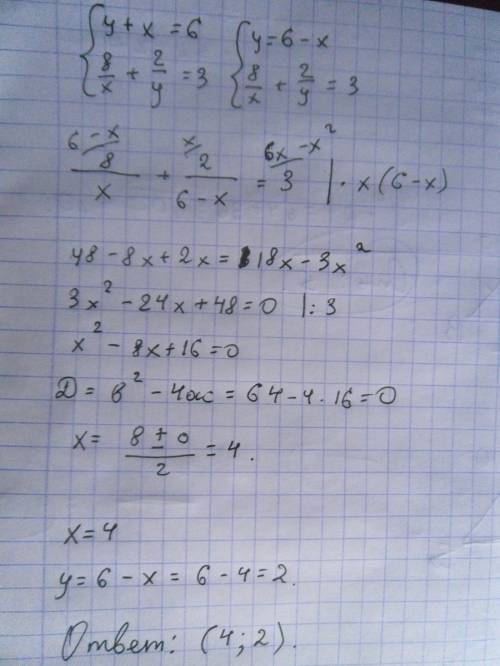 { y + x = 6 { y = 6 - x
{ 8/x + 2/y = 3 { 8/x + 2/y = 3
6-x/ 8/x + x/ 2/(6-x) = 6x-x²/ 3 | · x(6-x)
48 - 8x + 2x = 18x - 3x²
3x² - 24x + 48 = 0 | : 3
x² - 8x + 16 = 0
D = в² - 4ac = 64 - 4 · 16 = 0
x = (8 ± 0)/2 = 4.
x = 4
y = 6 - x = 6 - 4 = 2.
Ответ: (4; 2).